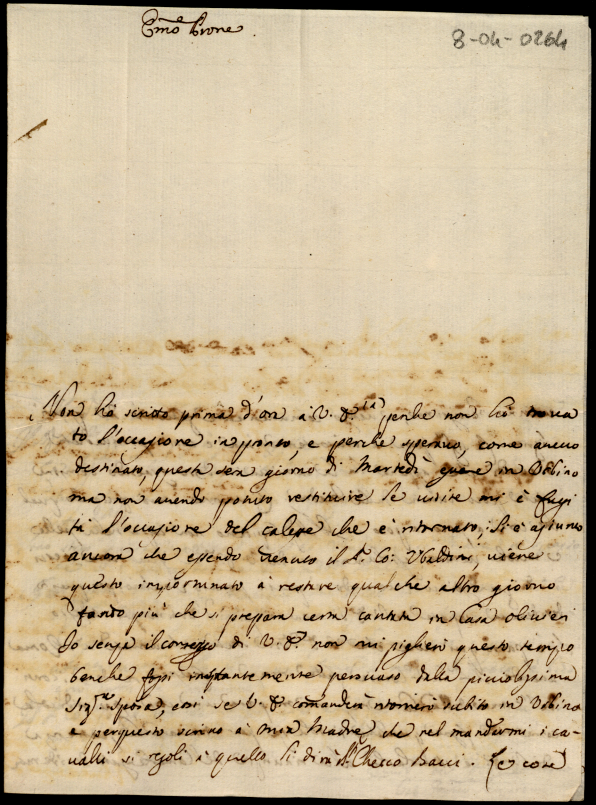 Emo Prone
8-04-0264
Non hò scritto prima d'ora à V. S. perche non hò trova
to l'occasione in pronto, e perche speravo, come avevo
destinato, questa sera giorno di Martedì essere in Vrbino
ma non avendo potuto restituire le visite mi è
tà l'occasione del calesse che è ritornato; Si è agiunto
ancora che essendo venuto il S. Co: Vbaldini, viene
questo importunato à restare qualche altro giorno
tanto più che si prepara certa cantata in casa Olivieri
Io senza il consenso di V. S. non mi piglierò questo tempo
benche fossi instantemente persuaso dalla picciolissima
Sig.ra Sposa, così se V. S. comanderà ritornerò subito in Vrbino
e per questo scrivo à mia Madre, che nel mandarmi i ca-
valli si regoli à quello li dirà Checco Le cose